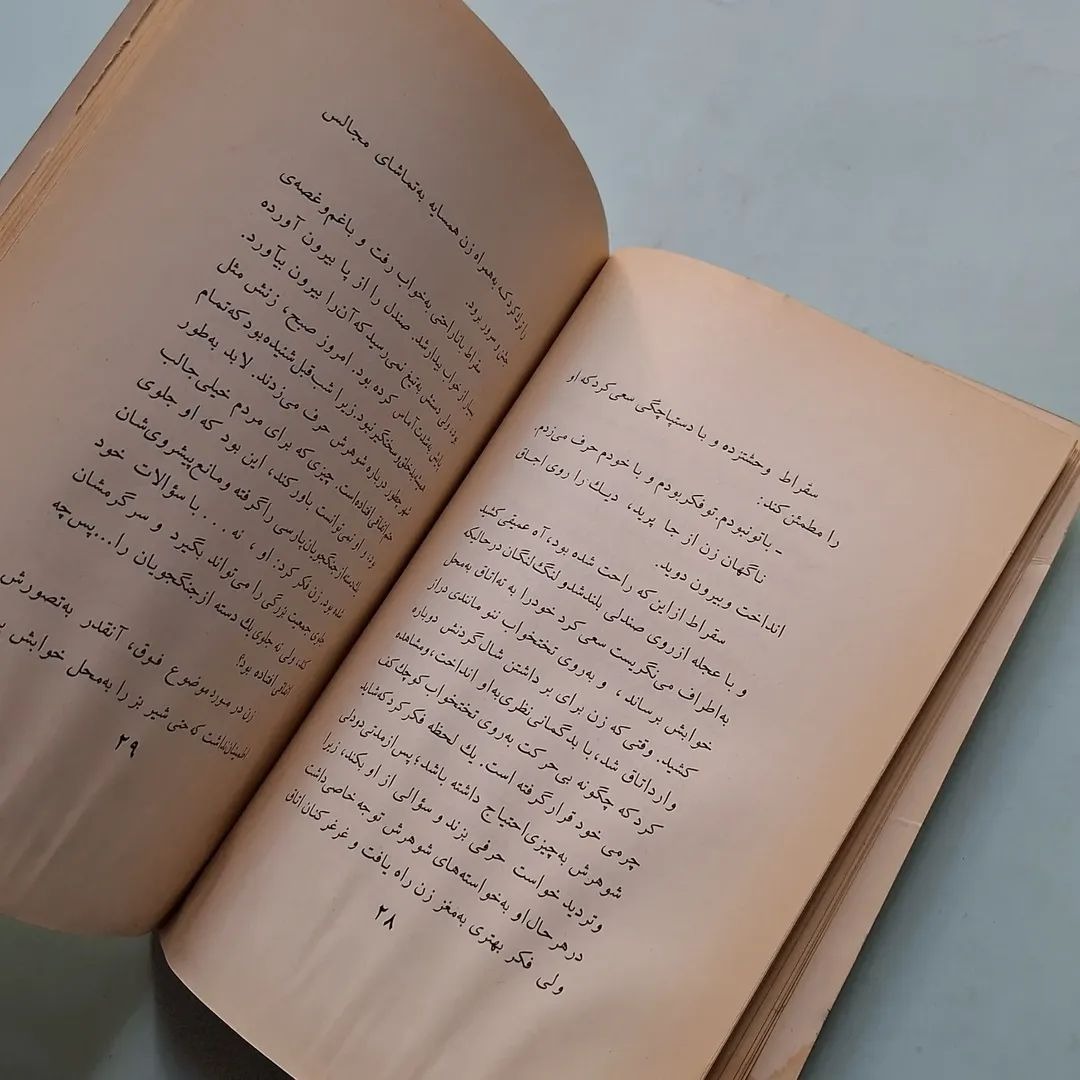 سقراط وحشتزده و با دستپاچگی سعی کرد که او
را مطمئن کند:
- با تو نبودم. تو فکر بودم و با خودم حرف می‌زدم.
ناگهان زن از جا پرید، دیک را روی اجاق
انداخت و بیرون دوید.
سقراط از این که راحت شده بود، آه عمیقی کشید
و با عجله از روی صندلی بلند شد و لنگ لنگان در حالیکه
به اطراف می‌نگریست سعی کرد خود را به ته اتاق به محل
خوابش برساند، و به روی تختخواب ننو مانندی دراز
کشید. وقتی که زن برای برداشتن شال گردنش دوباره
وارد اتاق شد، با بدگمانی نظری به او انداخت، و مشاهده
کرد که چگونه بی‌حرکت به روی تختخواب کوچک کف
چرمی خود قرار گرفته است. یك لحظه فکر کرد که شاید
شوهرش به چیزی احتیاج داشته باشد؛ پس از مدتی دودلی
و تردید خواست حرفی بزند و سؤالی از او بکند، زیرا
در هر حال او به خواسته‌های شوهرش توجه خاصی داشت
ولی فکر بهتری به مغز زن راه یافت و غرغر کنان اتاق
۲۸
را ترك کرد که به همراه زن همسایه به تماشای مجالس
جشن و سرور برود.
سقراط با ناراحتی به خواب رفت و با غم و غصه‌ی
بسیار از خواب بیدار شد. صندل را از پا بیرون آورده
بود، ولی دستش به تیغ نمی‌رسید که آن را بیرون بیآورد.
پایش به شدت آماس کرده بود. امروز صبح، زنش مثل
همیشه بدخلق و سختگیر نبود. زیرا شب قبل شنیده بود که تمام
شهر چطور درباره شوهرش حرف می‌زدند. لابد به طور
حتم اتفاقی افتاده است. چیزی که برای مردم خیلی جالب
بود، زن را نمی‌توانست باور کند، این بود که او جلوی
یك دسته از جنگجویان پارسی را گرفته و مانع پیشروی‌شان
شده بود. زن فکر کرد: او، نه ... با سؤالات خود
جلوی جمعیت بزرگی را می‌تواند بگیرد و سرگرمشان
کند، ولی نه جلوی یك دسته از جنگجویان را... پس چه
اتفاقی افتاده بود؟
زن در مورد موضوع فوق، آنقدر به تصورش
اطمینان داشت که حتی شیر بز را به محل خوابش
۲۹